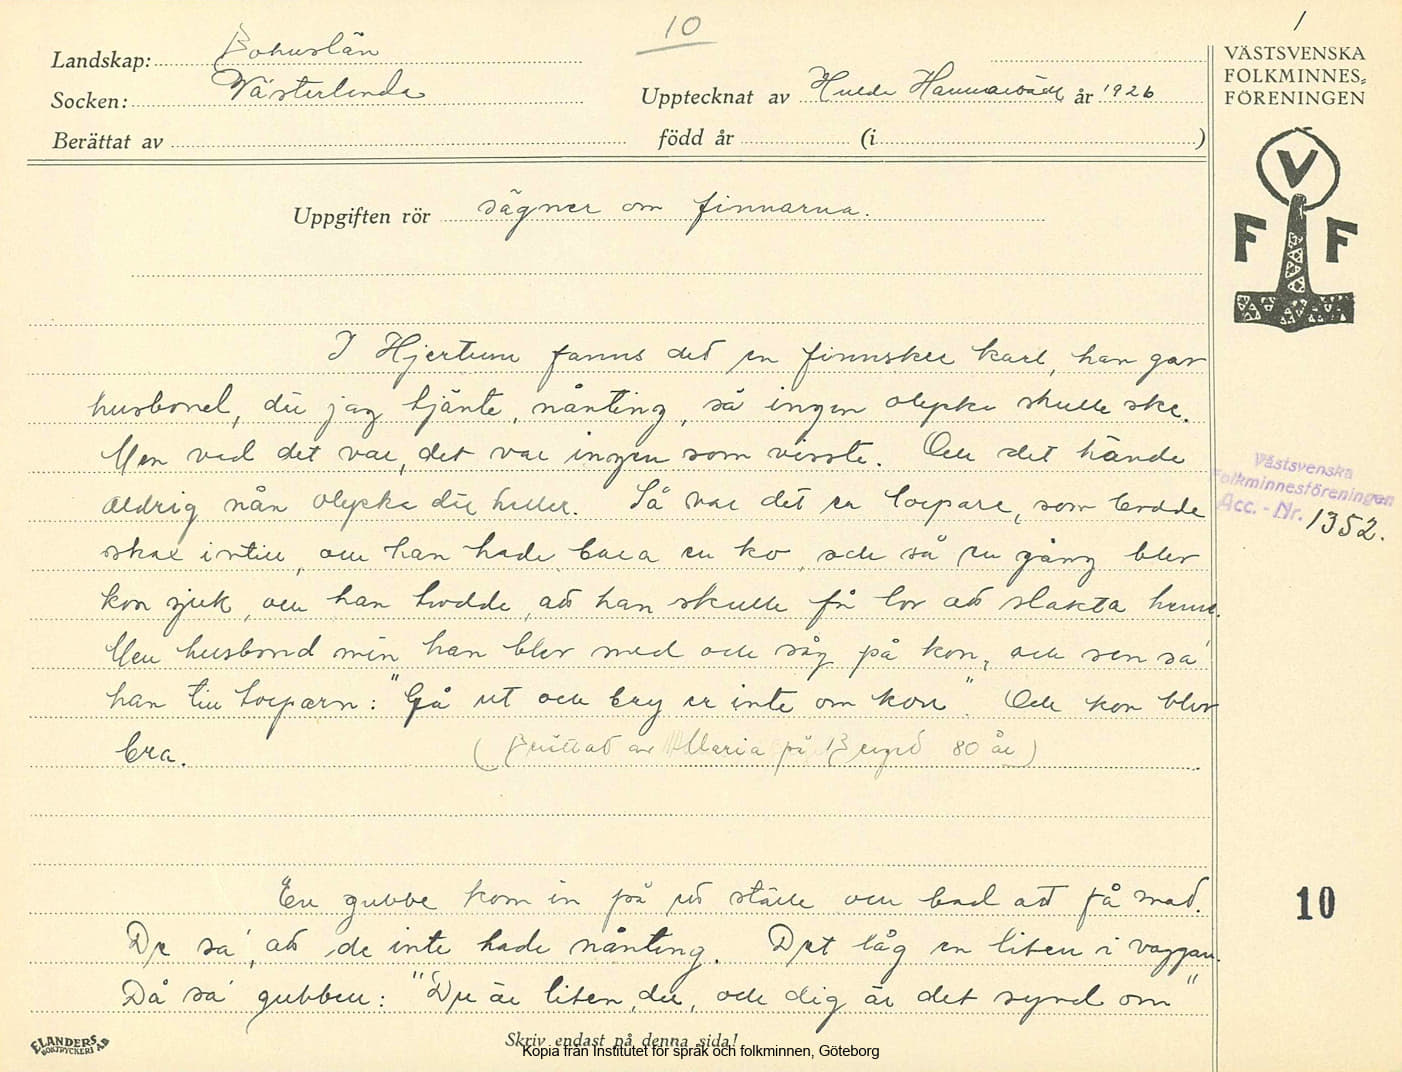 10
1
Landskap: Bohuslän
Socken: Västerlanda
Upptecknat av Hulda Hammarbäck år 1926
Berättat av
född år (i )
VÄSTSVENSKA
FOLKMINNES-
FÖRENINGEN
V
F F
Uppgiften rör sägner om finnarna.
I Hjertum fanns det en finnsker karl, han gav
husbond, där jag tjänte, nånting, så ingen olycka skulle ske.
Men vad det var, det var ingen som visste. Och det hände
aldrig nån olycka där heller. Så var det en torpare, som bodde
strax intill, och han hade bara en ko, och så en gång blev
kon sjuk, och han trodde, att han skulle få lov att slakta henne.
Men husbond min han blev med och såg på kon, och sen sa'
han till torparn: "Gå ut och bry er inte om kon". Och kon blev
bra. (Berättat av Maria på Bryngd 80 år)
En gubbe kom in på ett ställe och bad att få mat.
De sa', att de inte hade nånting. Det låg en liten i vaggan.
Då sa' gubben: "Du är liten, du, och dig är det synd om"
Västsvenska
Folkminnesföreningen
Acc. - Nr. 1352.
10
ELANDERS
BOKTRYCKERI AB
Skriv endast på denna sida!
Kopia från Institutet för språk och folkminnen, Göteborg